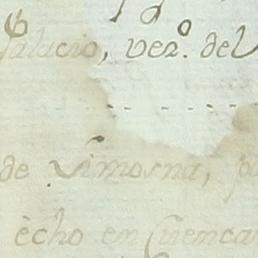 Palacio, vez.º del
de Limosna, p
echo en Cuenca